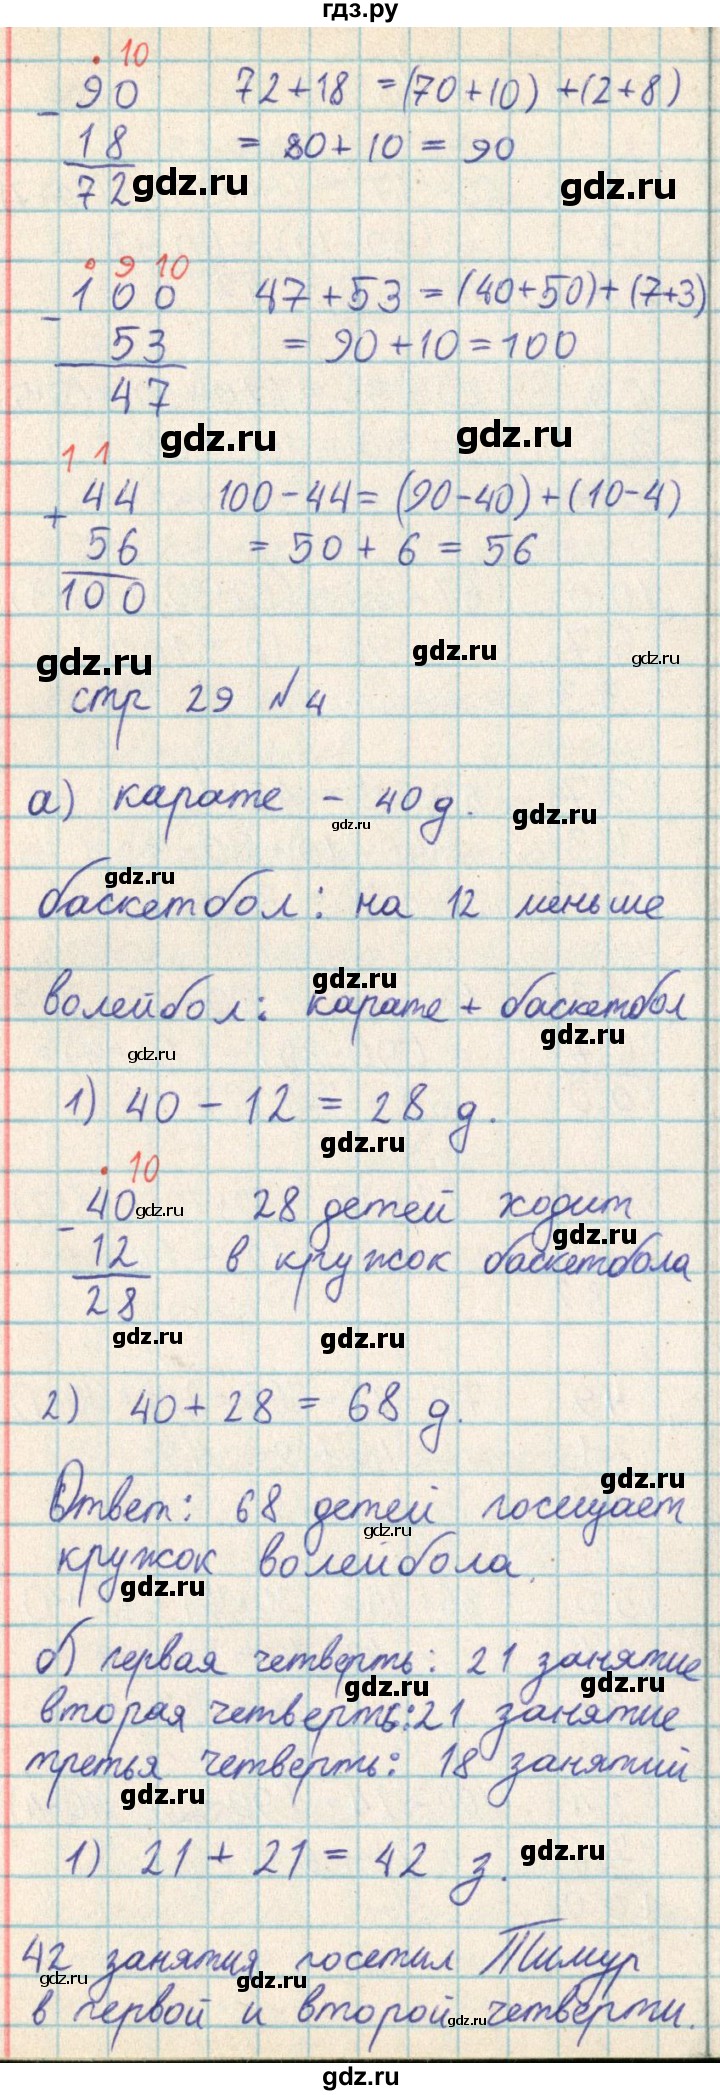 гдз.ру
• 10
90 72+18 =(70+10) +(2+8)
- 18 = 80+10 = 90
72 gdz.ru gdz.ru
• 9 10
100 47+53 = (40+50)+(7+3)
- 53 = 90+10=100
47
gdz.ru gdz.ru
1 1
44 100-44= (90-40)+(10-4)
+ 56 = 50 + 6 = 56
100
gdz.ru gdz.ru gdz.ru
стр 29 №4
а) карате - 40 д.
gdz.ru gdz.ru
gdz.ru
баскетбол: на 12 меньше
gdz.ru
волейбол: карате + баскетбол
gdz.ru gdz.ru
1) 40 - 12 = 28 д.
gdz.ru
• 10
40 gdz.ru 28 детей ходит
gdz.ru
- 12 в кружок баскетбола
28
gdz.ru gdz.ru
2) 40+28 = 68 д.
gdz.ru
Ответ: 68 детей посещает
gdz.ru
кружок волейбола.
gdz.ru
б) первая четверть: 21 занятие
gdz.ru gdz.ru
вторая четверть: 21 занятие
третья четверть: 18 занятий
gdz.ru
1) 21 + 21 = 42 з.
gdz.ru
42 занятия посетил Тимур
gdz.ru gdz.ru
в первой и второй четверти.
gdz.ru
gdz.ru